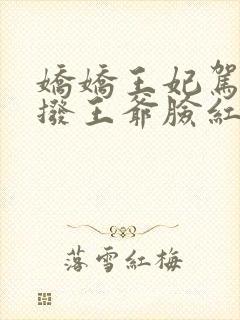 嬌嬌王妃駕
撥王爺臉紅
落雪紅梅